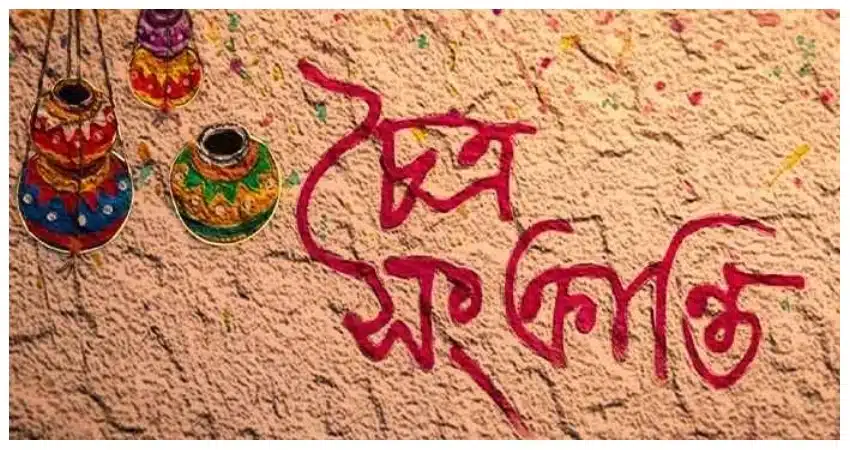 চৈত্র
সংক্রান্তি